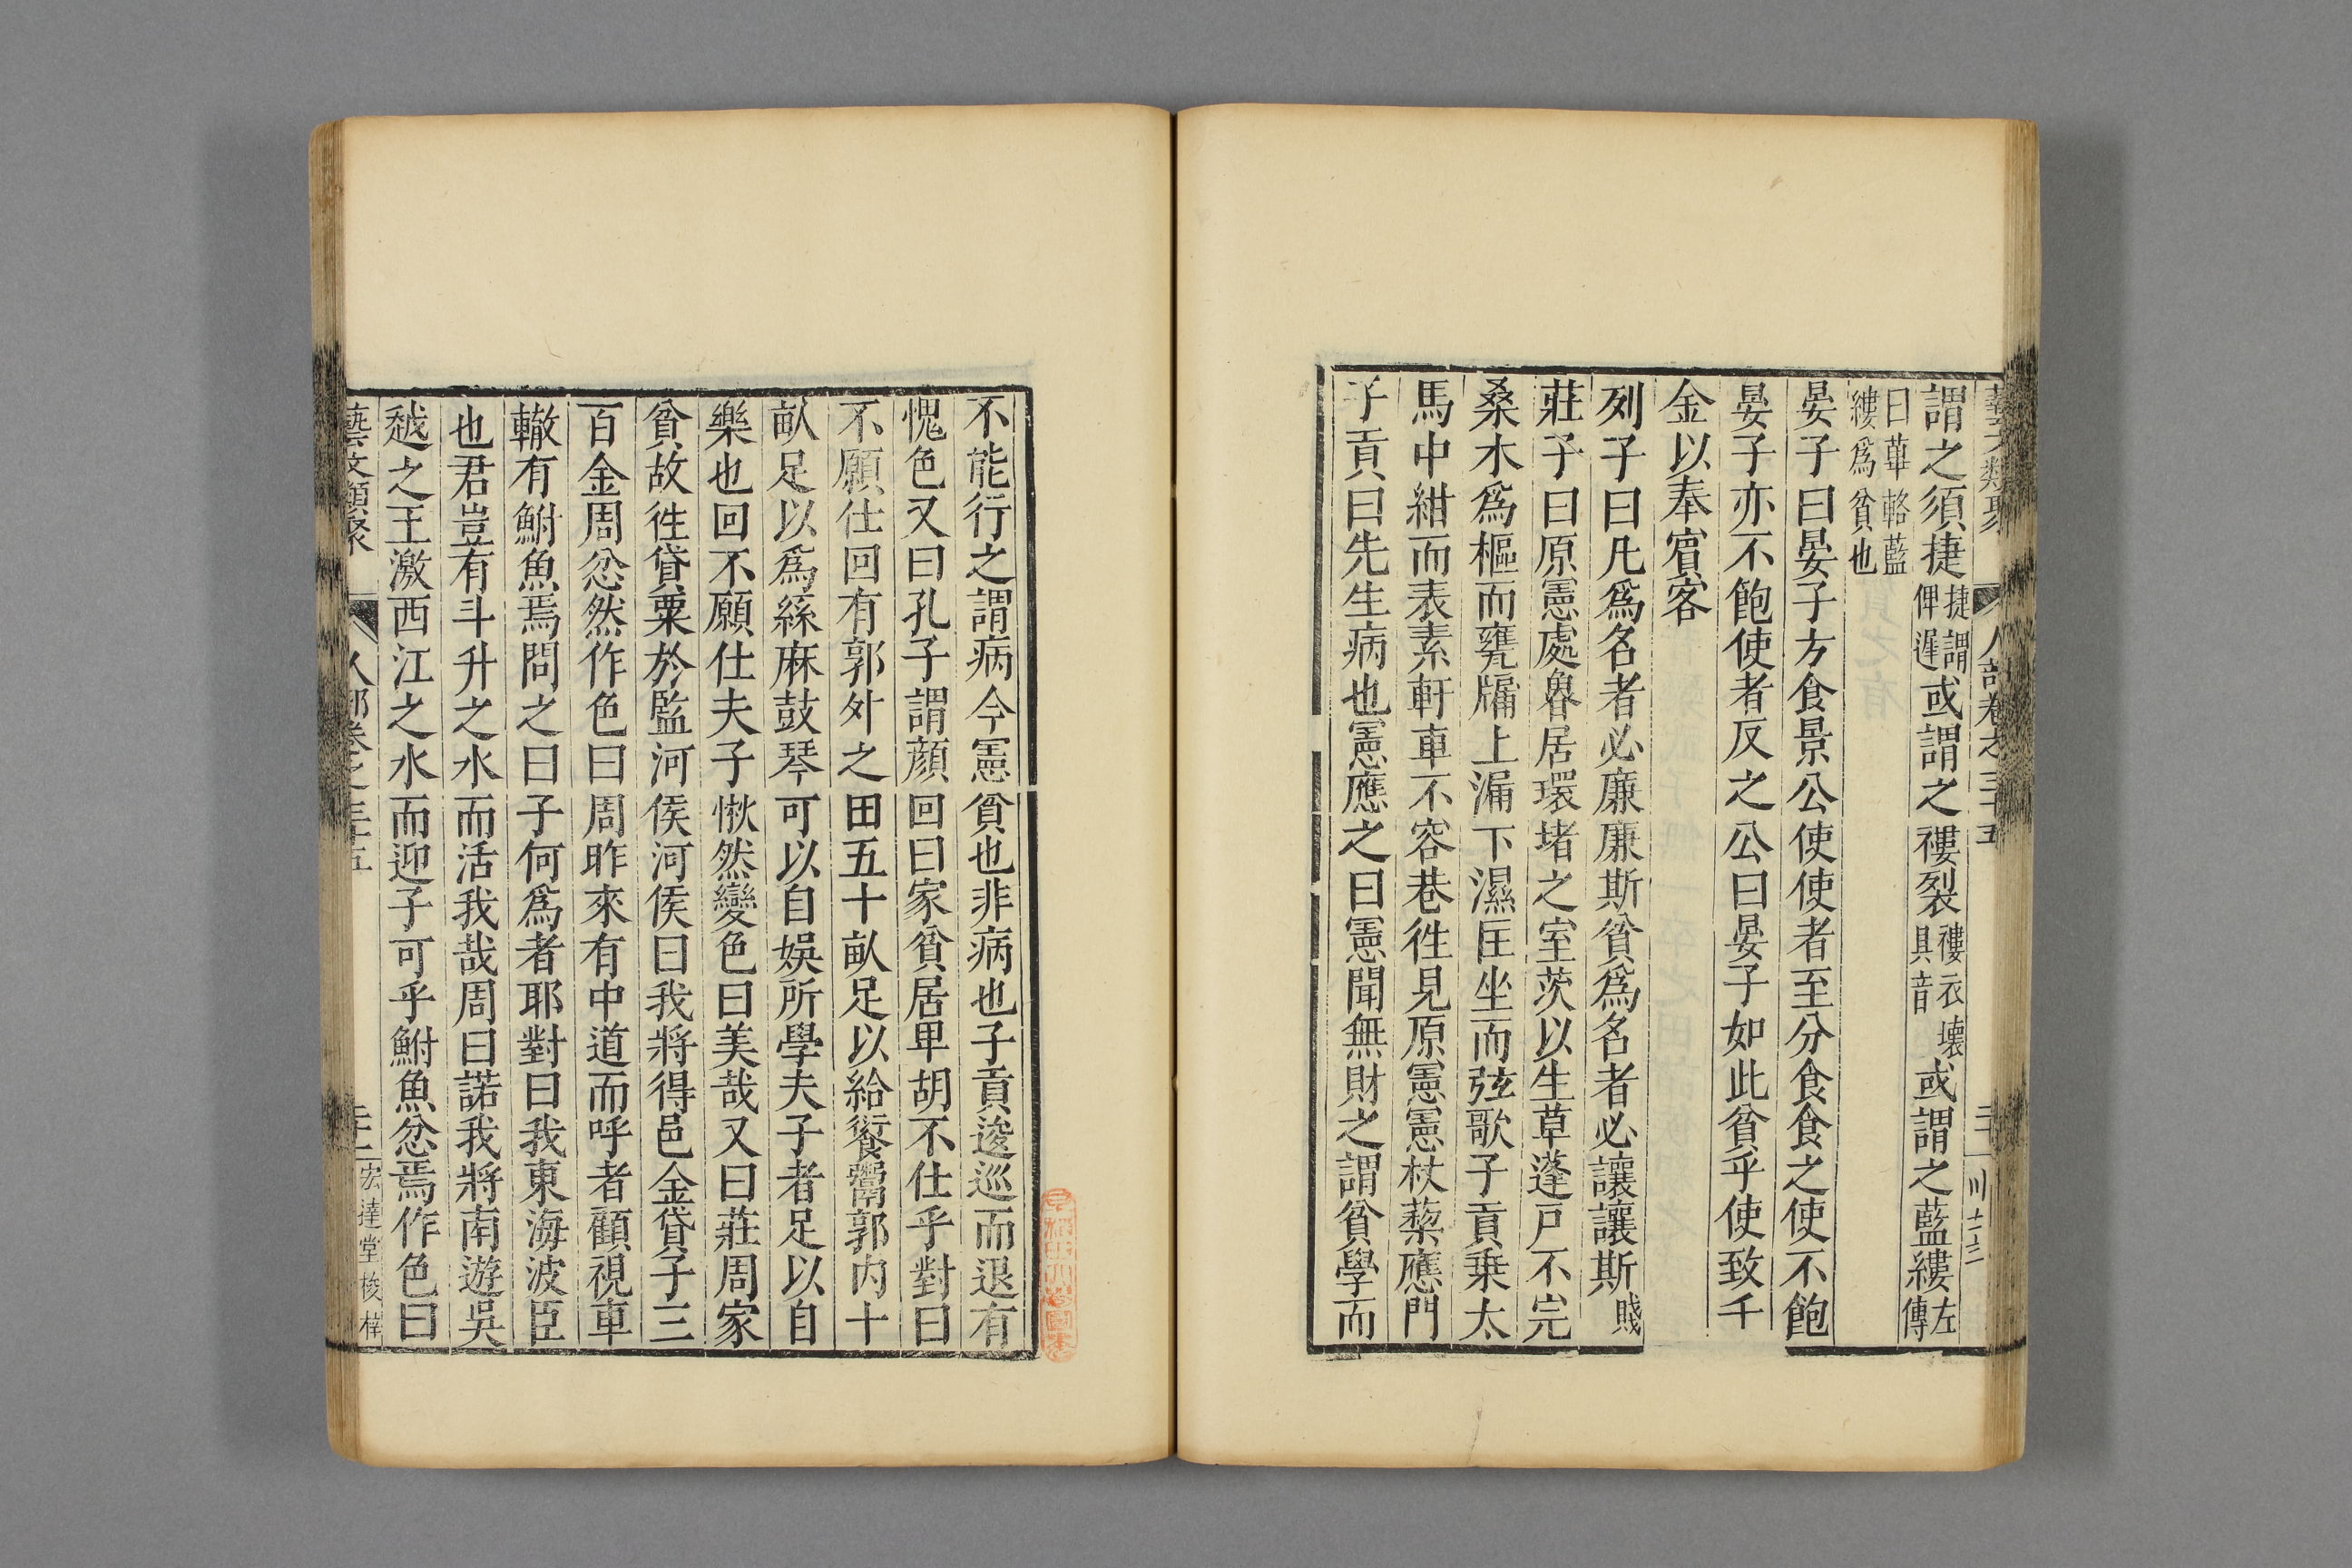 藝文類聚 人部卷之三十五
謂之須捷捷謂俾遟或謂之褸裂褸衣壞具音或謂之藍縷左傳
曰蓽輅藍縷爲貧也
晏子曰晏子方食景公使使者至分食食之使不飽
晏子亦不飽使者反之公曰晏子如此貧乎使致千
金以奉賓客
列子曰凡爲名者必廉廉斯貧爲名者必讓讓斯賤
莊子曰原憲處魯居環堵之室茨以生草蓬戸不完
桑木爲樞而甕牖上漏下濕匡坐而弦歌子貢乗太
馬中紺而表素軒車不容巷徃見原憲憲杖藜應門
子貢曰先生病也憲應之曰憲聞無財之謂貧學而
不能行之謂病今憲貧也非病也子貢逡巡而退有
愧色又曰孔子謂顔回曰家貧居卑胡不仕乎對曰
不願仕回有郭外之田五十畝足以給饘鬻郭内十
畝足以爲絲麻鼓琴可以自娛所學夫子者足以自
樂也回不願仕夫子愀然變色曰美哉又曰莊周家
貧故徃貸粟於監河侯河侯曰我將得邑金貸子三
百金周忿然作色曰周昨來有中道而呼者顧視車
轍有鮒魚焉問之曰子何爲者耶對曰我東海波臣
也君豈有斗升之水而活我哉周曰諾我將南遊吳
越之王激西江之水而迎子可乎鮒魚忿焉作色曰
藝文類聚 人部卷之三十五 宏達堂梭梓